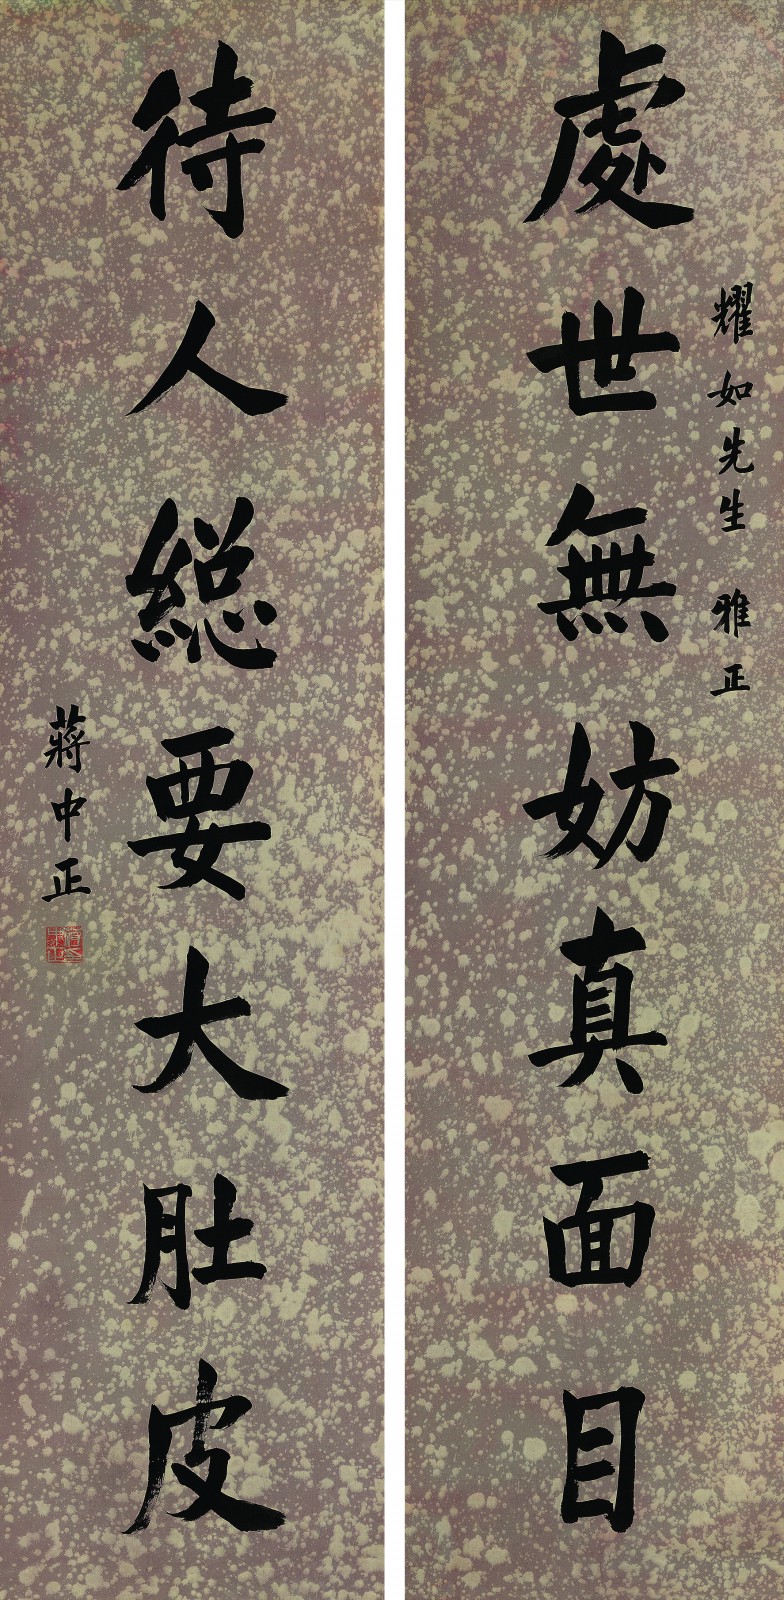 耀如先生 雅正
處世無妨真面目
待人総要大肚皮
蔣中正